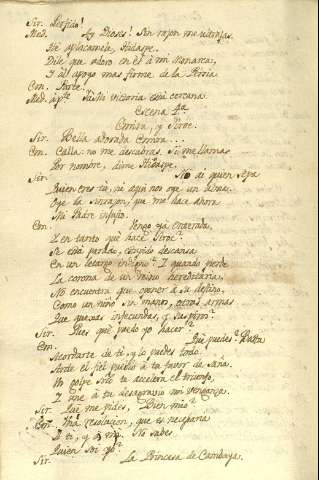 Sir. Perfido!
Med. Ay Dioses! Sin razon me ultrajas.
Ve aplacamela, Hidaspe.
Dile que adoro en el á mi Monarca,
Y al apoyo mas firme de la Persia
Em. Parte.
Med. apte. Mi victoria está cercana.
Escena 4ª
Emira, y Siroe.
Sir. Bella adorada Emira...
Em. Calla: no me descubras. Si me llamas
Por nombre, dime Hidaspe.
Sir. No ai quien sepa
Quien eres tú, ni aqui nos oye un alma.
Oye la sinrazon, que me hace ahora
Mi Padre injusto.
Em. Vengo ya enterada.
Y en tanto que hace Siroe?
Se está parado, estupido descansa
En un letargo indigno? Y quando pierde
La corona de un reino hereditaria,
No encuentra que oponer á su destino,
Como un niño sin manos, otras armas
Que quexas infecundas, y suspiros?
Sir. Pues que puedo yo hacer?
Em. Que puedes? Basta
Acordarte de ti, y lo puedes todo.
Arde el fiel pueblo á tu favor de saña.
Un golpe solo te acelera el triunfo,
Y une á tu desagravio mi venganza.
Sir. Que me pides, Bien mio?
Em. Una resolucion, que es necesaria
A ti, y á mi. No sabes
Quien soi yo?
Sir. La Princesa de Cambaya.